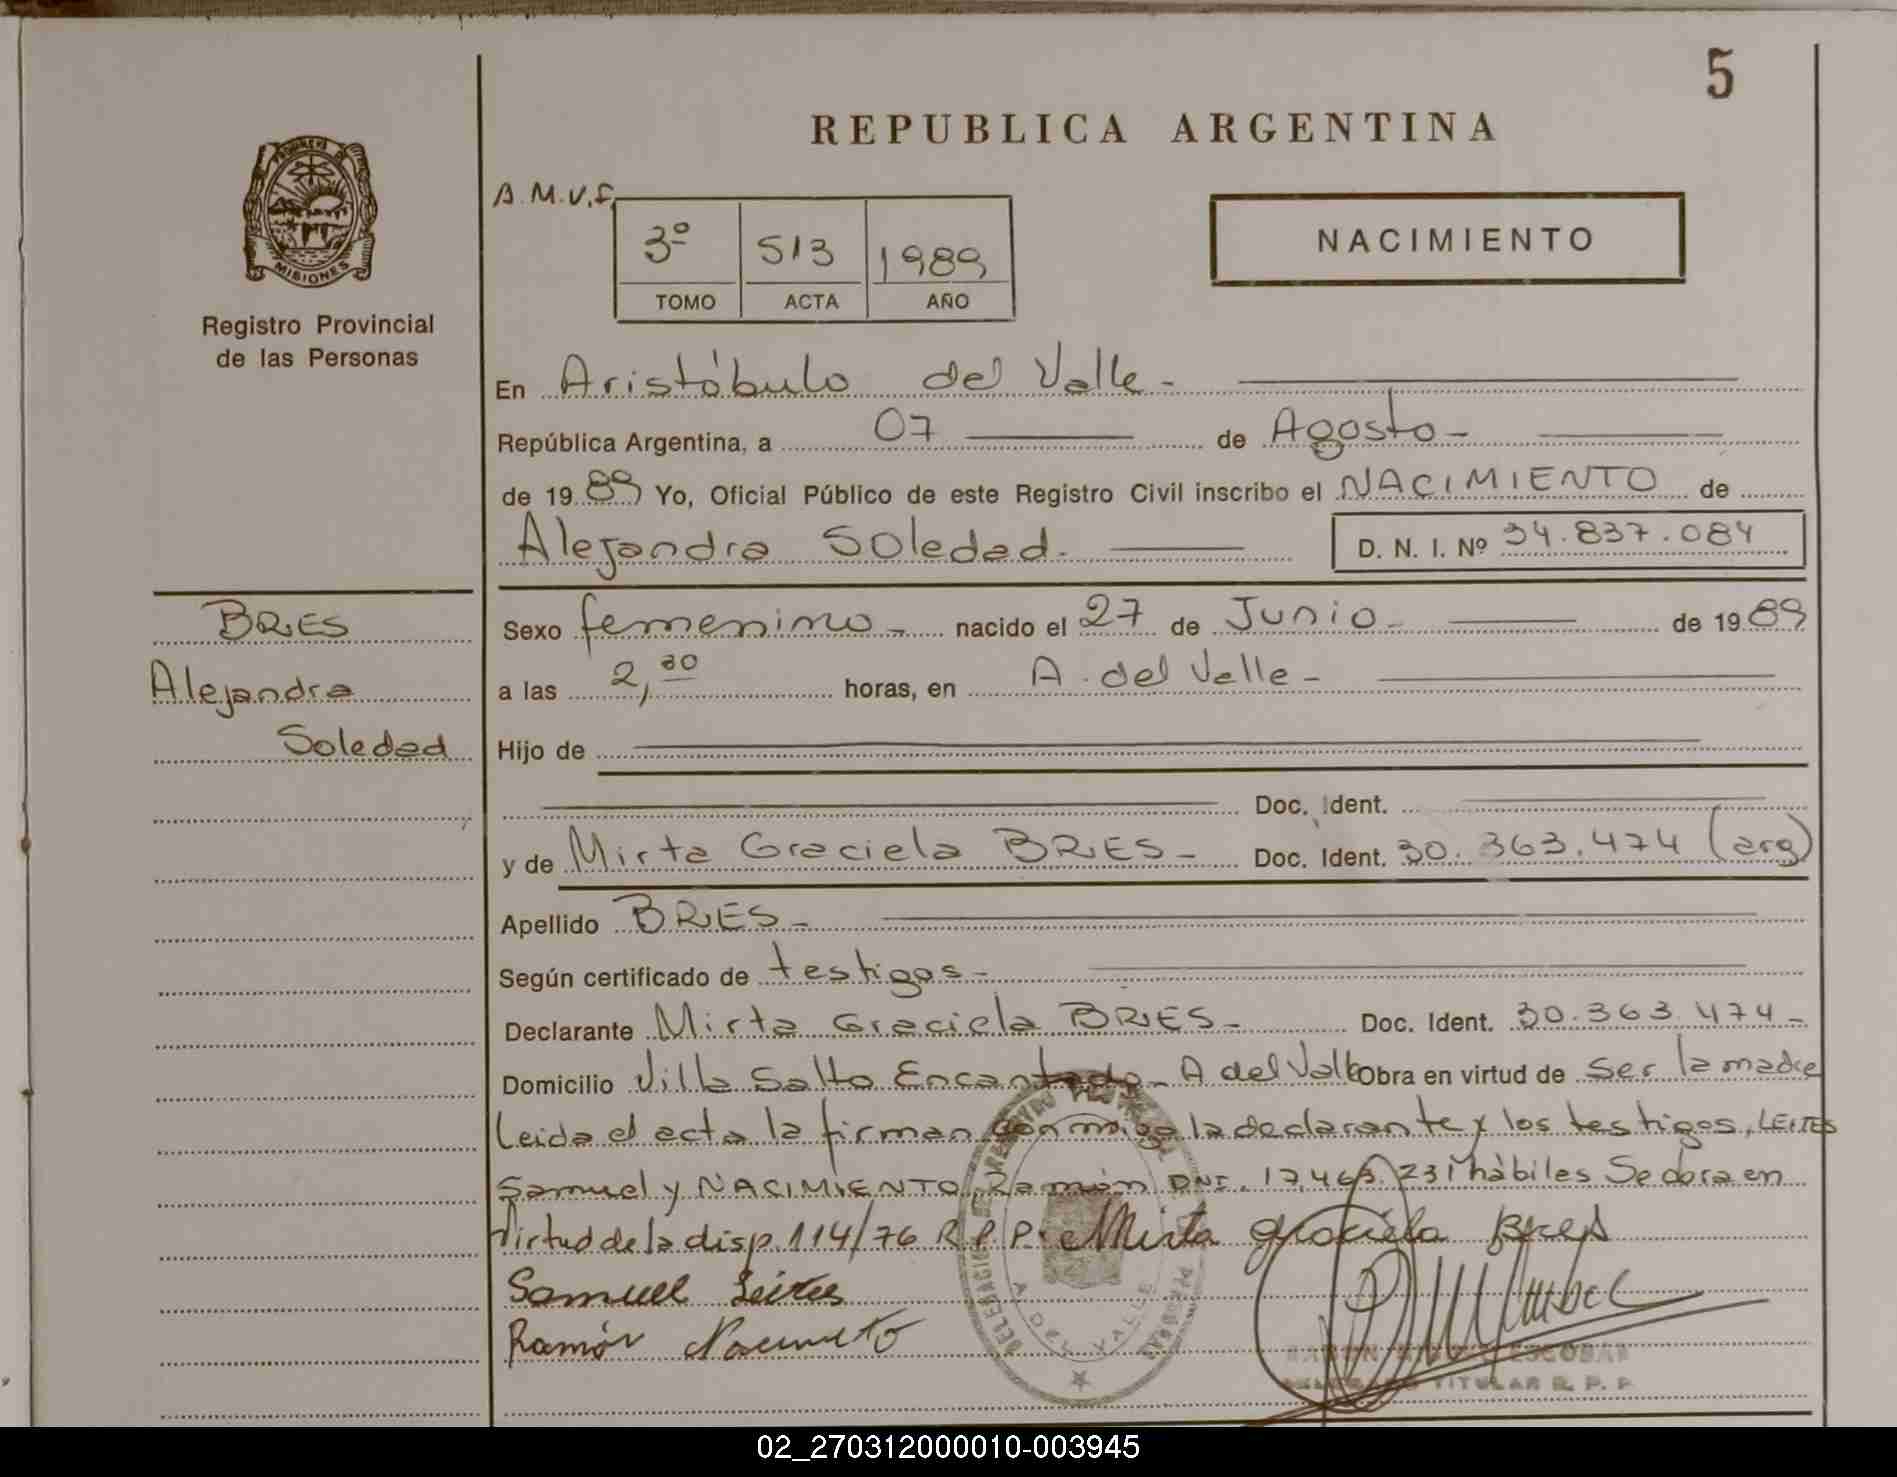 5
REPUBLICA ARGENTINA
PROVINCIA DE
MISIONES
Registro Provincial
de las Personas
A.M.V.F.
3º 513 1989
TOMO ACTA AÑO
NACIMIENTO
En Aristóbulo del Valle -
República Argentina, a 07 de Agosto -
de 1989 Yo, Oficial Público de este Registro Civil inscribo el NACIMIENTO de
Alejandra Soledad. D. N. I. Nº 34.837.084
BRES
Alejandra
Soledad
Sexo femenino - nacido el 27 de Junio - de 1989
a las 2,30 horas, en A. del Valle -
Hijo de
Doc. Ident.
y de Mirta Graciela BRES - Doc. Ident. 30.363.474 (arg)
Apellido BRES -
Según certificado de testigos -
Declarante Mirta Graciela BRES - Doc. Ident. 30.363.474 -
Domicilio Villa Salto Encantado - A del Valle Obra en virtud de ser la madre
Leida el acta la firman conmigo la declarante y los testigos, LEITES
Samuel y NACIMIENTO, Ramón DNI. 17.463.231 hàbiles Se obra en
Virtud de la disp. 114/76 R.P.P. Mirta graciela Bres
Samuel Leites
Ramón Nacimeto
A DEL VALLE
ESCOBAR
TITULAR R. P. P.
02_270312000010-003945